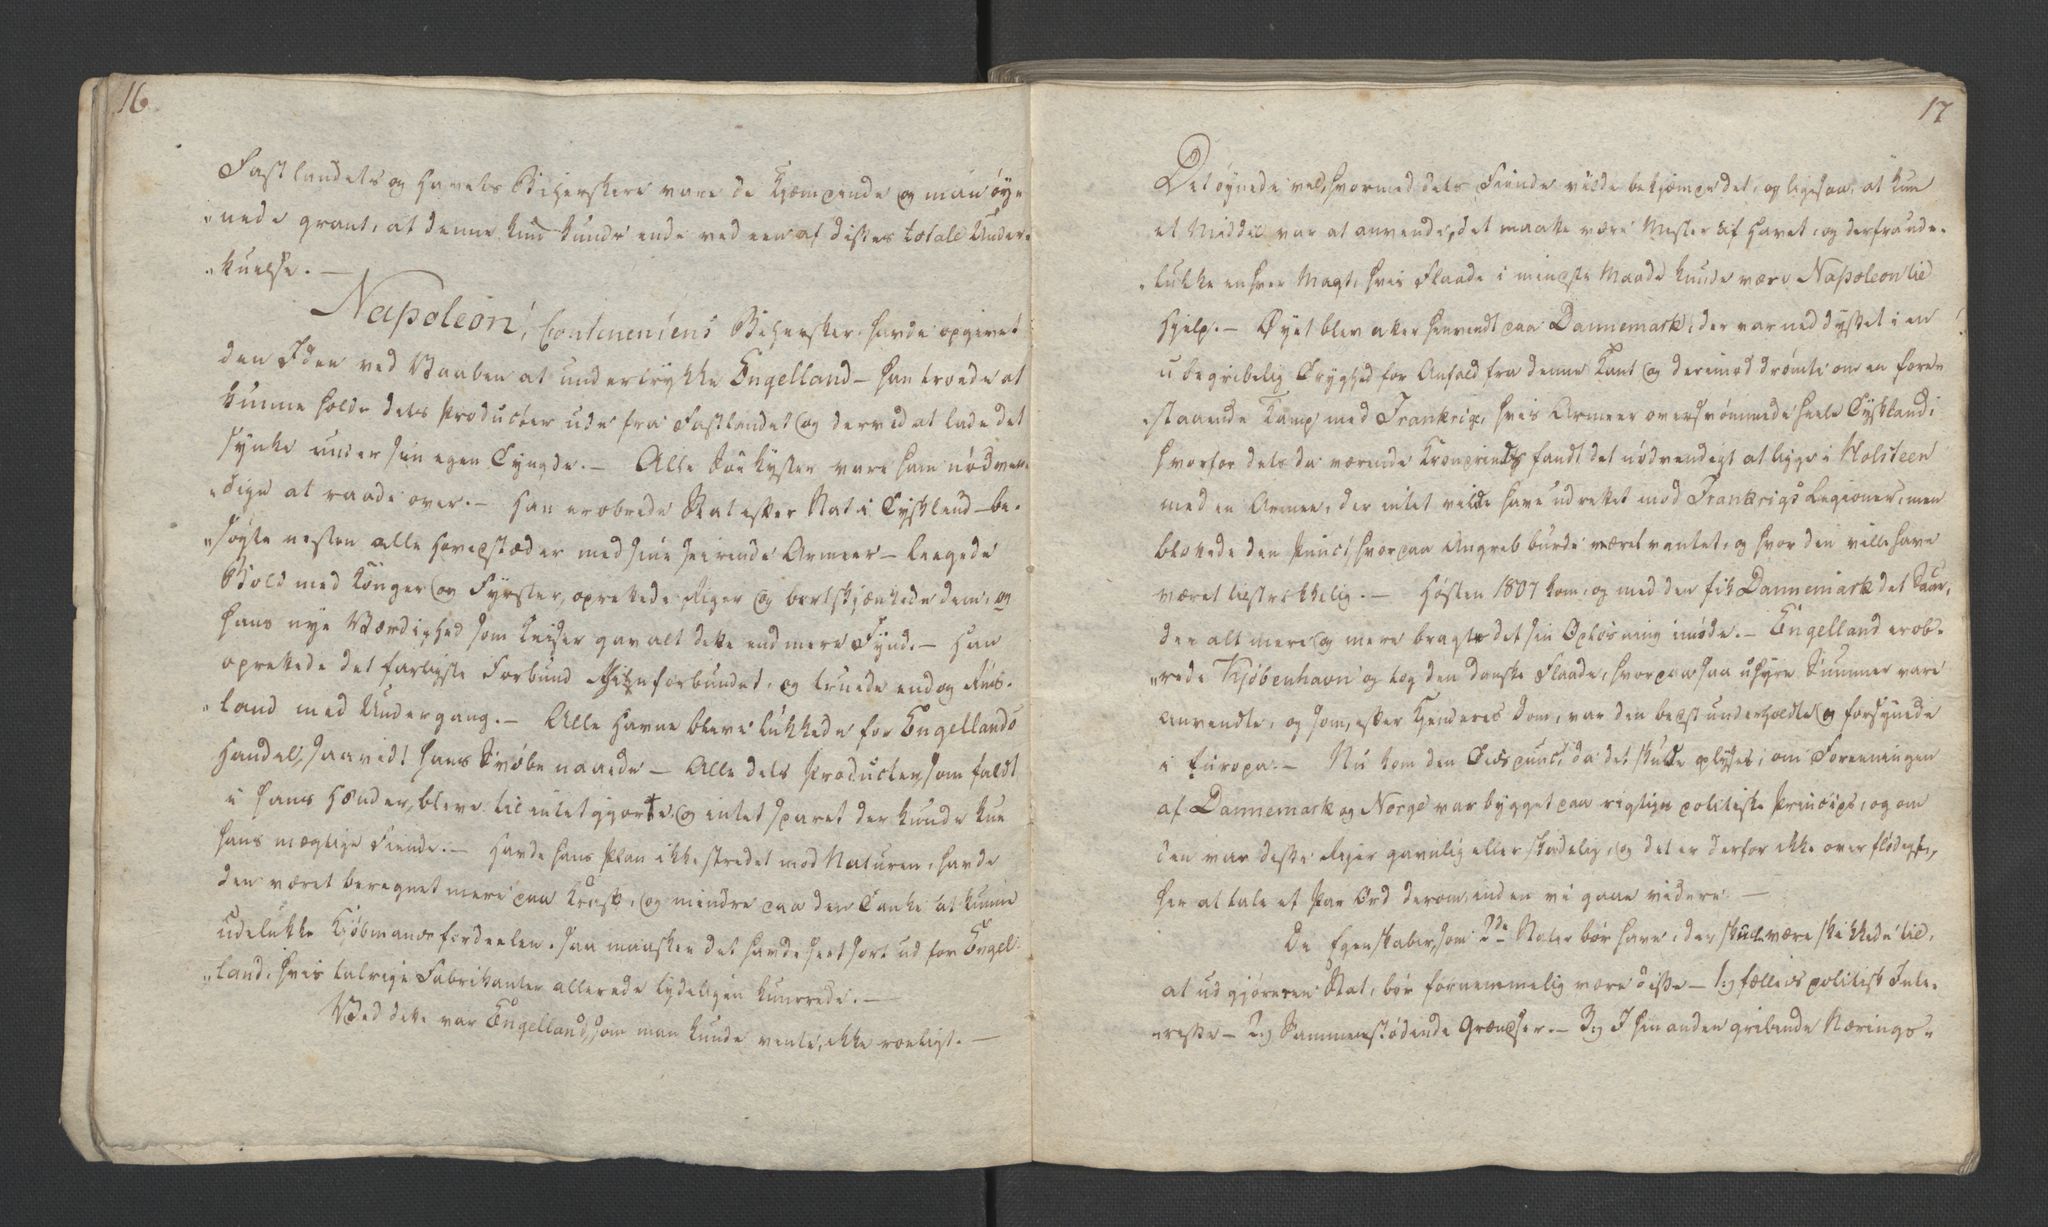 16
Fastlandets og Havets Beherskere vare de Kæmpende og man øy-
nede grant, at denne kun kunde ende ved een af disses totale Under-
kuelse. —
Napoleon, Continentens Behersker, havde opgivet
den Idee ved Vaaben at undertrykke Engelland — han troede at
kunne holde dets Producter ude fra Fastlandet og derved at lade det
synke under sin egen Tyngde. — Alle Søe Kyster vare ham nødven-
dige at raade over. — Han erobrede Stat efter Stat i Tyskland — be-
søgte nesten alle Hovedstæder med sine seirende Armeer — legede
Bold med Konger og Fyrster, oprettede Riger og bortskjænkede dem, og
hans nye Værdighed som Keiser gav alt dette end mere Fynd. — Han
oprettede det farligste Forbund Rhinforbundet, og truede endog Rus-
land med Undergang. — Alle Havne bleve lukkede for Engellands
Handel, saavidt hans Svøbe naaede — Alle dets Producter, som faldt
i hans Hænder, bleve tilintetgjorte, og intet sparet der kunde kue
hans mægtige Fiende. — Havde hans Plan ikke stredet mod Naturen, havde
den været beregnet mere paa Kraft, og mindre paa den Tanke at kunne
udelukke Kjøbmands fordeelen, saa maaskee det havde seet sort ud for Engel-
land, hvis talrige Fabrikanter allerede tydeligen knurrede. —
Ved dette var Engelland, som man kunde vente, ikke roeligt. —
17
Det øynede vel, hvormed dets Fiende vilde bekjæmpe det, og ligesaa, at kun
et Middel var at anvende, det maatte være Mester af Havet, og derfra ude-
lukke enhver Magt, hvis Flaade i mindste Maade kunde være Napoleon til
Hjelp. — Øyet blev atter henvendt paa Dannemark, der var neddysset i en
ubegribelig Tryghed for Anfald fra denne Kant og derimod drømte om en fore-
staaende Kamp med Frankrig, hvis Armeer oversvømmede heele Tyskland;
hvorfor dets da værende Kronprinds fandt det nødvendigt at ligge i Holsteen
med en Armee, der intet vilde have udrettet mod Frankrigs Legioner, men
blottede den Punct, hvorpaa Angreb burde været ventet, og hvor den ville have
været tilstrækkelig. — Høsten 1807 kom, og med den fik Dannemark det Saar,
der alt mere og mere bragte det sin Opløsning imøde. — Engelland erob-
rede Kjøbenhavn og tog den danske Flaade, hvorpaa saa uhyre Summer vare
anvendte, og som, efter Kjenderes Dom, var den best underholdte og forsynede
i Europa. — Nu kom den Tidspunct, da det skulde oplyses, om Foreeningen
af Dannemark og Norge var bygget paa rigtige politiske Principe, og om
den var disse Riger gavnlig eller skadelig, og det er derfor ikke overflødigt,
her at tale et Par Ord derom, inden vi gaae videre. —
De Egenskaber, som 2de Stater bør have, der skulle være skikkede til,
at udgjøre een Stat, bør fornemmelig være disse — 1) fælleds politisk Inte-
resse — 2) Sammenstødende Grændser. — 3) I hinanden gribende Nærings-